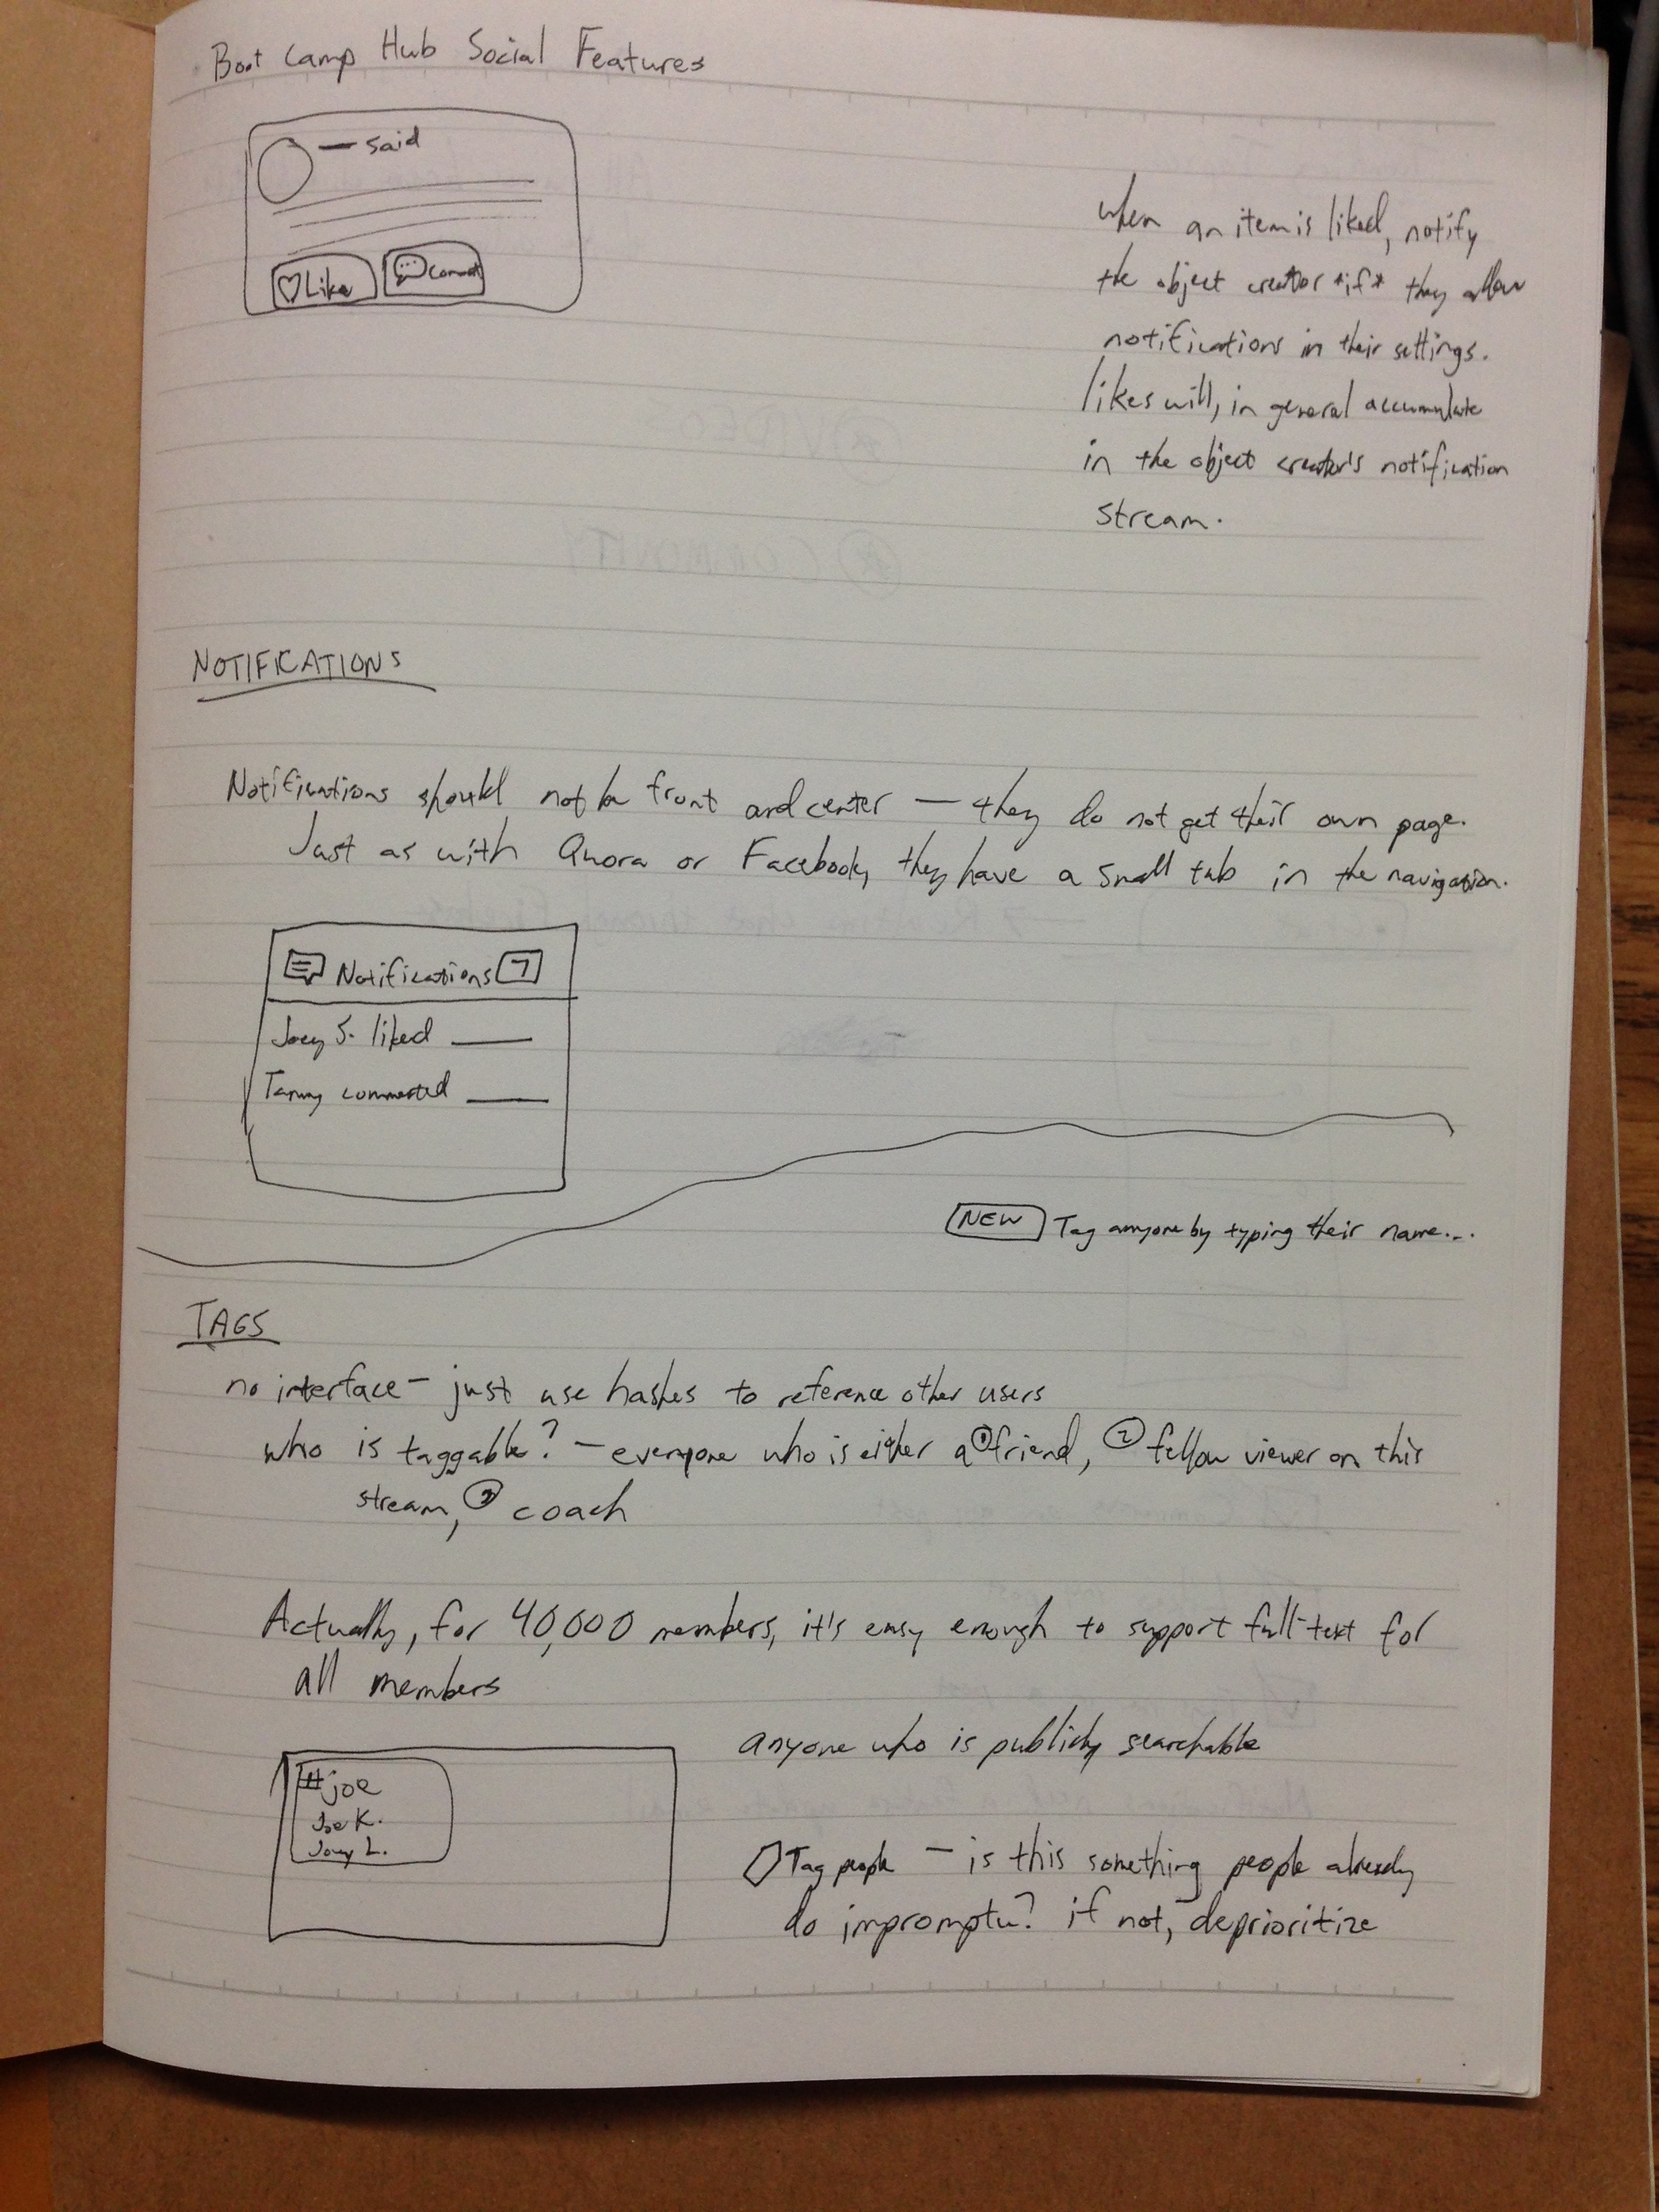 Boot Camp Hub Social Features
— said
Like
Comment
when an item is liked, notify
the object creator *if* they allow
notifications in their settings.
likes will, in general accumulate
in the object creator's notification
stream.
NOTIFICATIONS
Notifications should not be front and center — they do not get their own page.
Just as with Quora or Facebook, they have a small tab in the navigation.
Notifications 7
Joey S. liked
commented
NEW Tag anyone by typing their name...
TAGS
no interface - just use hashes to reference other users
who is taggable? - everyone who is either a ① friend, ② fellow viewer on this
stream, ③ coach
Actually, for 40,000 members, it's easy enough to support full-text for
all members
anyone who is publicly searchable
#joe
Joe K.
Joey L.
Tag people - is this something people already
do impromptu? if not, deprioritize